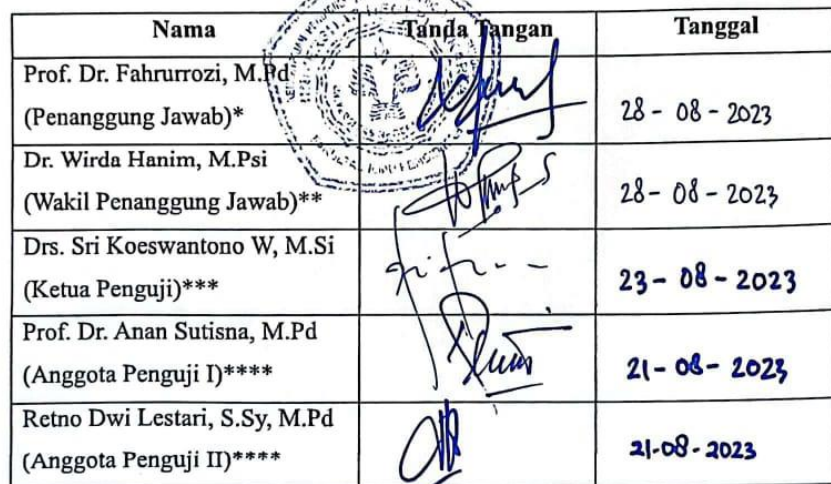 Nama Tanda Tangan Tanggal
Prof. Dr. Fahrurrozi, M.Pd
(Penanggung Jawab)* 28 - 08 - 2023
Dr. Wirda Hanim, M.Psi
(Wakil Penanggung Jawab)** 28 - 08 - 2023
Drs. Sri Koeswantono W, M.Si
(Ketua Penguji)*** 23 - 08 - 2023
Prof. Dr. Anan Sutisna, M.Pd
(Anggota Penguji I)**** 21 - 08 - 2023
Retno Dwi Lestari, S.Sy, M.Pd
(Anggota Penguji II)**** 21-08-2023